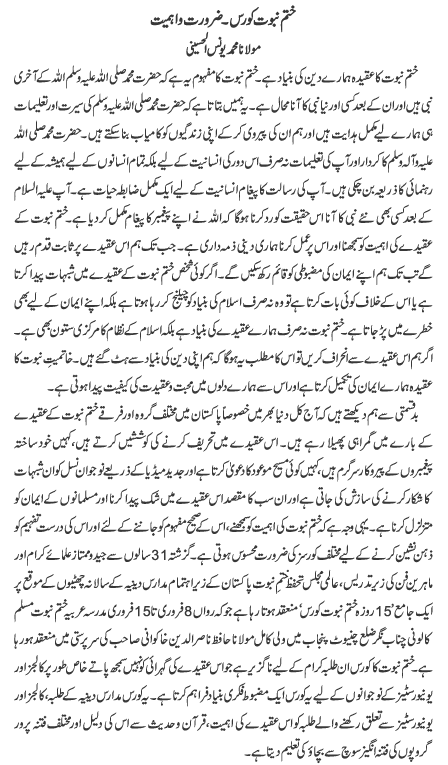 ختم نبوت کورس۔ ضرورت و اہمیت
مولانا محمد یونس الحسینی
ختم نبوت کا عقیدہ ہمارے دین کی بنیاد ہے۔ ختم نبوت کا مفہوم یہ ہے کہ حضرت محمد صلی اللہ علیہ وسلم اللہ کے آخری
نبی ہیں اور ان کے بعد کسی اور نیا نبی کا آنا محال ہے۔ یہ ہمیں بتاتا ہے کہ حضرت محمد صلی اللہ علیہ وسلم کی سیرت اور تعلیمات
ہی ہمارے لیے مکمل ہدایت ہیں اور ہم ان کی پیروی کر کے اپنی زندگیوں کو کامیاب بنا سکتے ہیں۔ حضرت محمد صلی اللہ
علیہ وآلہ وسلم کا کردار اور آپ کی تعلیمات نہ صرف اس دور کی انسانیت کے لیے بلکہ تمام انسانوں کے لیے ہمیشہ کے لیے
رہنمائی کا ذریعہ بن چکی ہیں۔ آپ کی رسالت کا پیغام انسانیت کے لیے ایک مکمل ضابطہ حیات ہے۔ آپ علیہ السلام
کے بعد کسی بھی نئے نبی کا آنا اس حقیقت کو رد کرنا ہوگا کہ اللہ نے اپنے پیغمبر کا پیغام مکمل کر دیا ہے۔ ختم نبوت کے
عقیدے کی اہمیت کو سمجھنا اور اس پر عمل کرنا ہماری دینی ذمہ داری ہے۔ جب تک ہم اس عقیدے پر ثابت قدم رہیں
گے تب تک ہم اپنے ایمان کی مضبوطی کو قائم رکھ سکیں گے۔ اگر کوئی شخص ختم نبوت کے عقیدے میں شبہات پیدا کرتا
ہے یا اس کے خلاف کوئی بات کرتا ہے تو وہ نہ صرف اسلام کی بنیاد کو چیلنج کر رہا ہوتا ہے بلکہ اپنے ایمان کے لیے بھی
خطرے میں پڑ جاتا ہے۔ ختم نبوت نہ صرف ہمارے عقیدے کی بنیاد ہے بلکہ اسلام کے نظام کا مرکزی ستون بھی ہے۔
اگر ہم اس عقیدے سے انحراف کریں تو اس کا مطلب یہ ہوگا کہ ہم اپنی دین کی بنیاد سے ہٹ گئے ہیں۔ خاتمیت نبوت کا
عقیدہ ہمارے ایمان کی تکمیل کرتا ہے اور اس سے ہمارے دلوں میں محبت و عقیدت کی کیفیت پیدا ہوتی ہے۔
بدقسمتی سے ہم دیکھتے ہیں کہ آج کل دنیا بھر میں خصوصاً پاکستان میں مختلف گروہ اور فرقے ختم نبوت کے عقیدے
کے بارے میں گمراہی پھیلا رہے ہیں۔ اس عقیدے میں تحریف کرنے کی کوششیں کرتے ہیں، کہیں خود ساختہ
پیغمبروں کے پیروکار سرگرم ہیں، کہیں کوئی مسیح موعود کا دعویٰ کرتا ہے اور جدید میڈیا کے ذریعے نوجوان نسل کو ان شبہات
کا شکار کرنے کی سازش کی جاتی ہے اور ان سب کا مقصد اس عقیدے میں شک پیدا کرنا اور مسلمانوں کے ایمان کو
متزلزل کرنا ہے۔ یہی وجہ ہے کہ ختم نبوت کی اہمیت کو سمجھنے، اس کے صحیح مفہوم کو جاننے کے لئے اور اس کی درست تفہیم کو
ذہن نشین کرنے کے لیے مختلف کورسز کی ضرورت محسوس ہوتی ہے۔ گزشتہ 31 سالوں سے جید و ممتاز علمائے کرام اور
ماہرین فن کی زیر تدریس، عالمی مجلس تحفظ ختم نبوت پاکستان کے زیر اہتمام مدارس دینیہ کے سالانہ چھٹیوں کے موقع پر
ایک جامع '15 روزہ ختم نبوت کورس' منعقد ہوتا رہا ہے جو کہ رواں 8 فروری تا 15 فروری مدرسہ عربیہ ختم نبوت مسلم
کالونی چناب نگر ضلع چنیوٹ پنجاب میں ولی کامل مولانا حافظ ناصر الدین خاکوانی صاحب کی سرپرستی میں منعقد ہو رہا
ہے۔ ختم نبوت کا کورس ان طلبہ کرام کے لیے ناگزیر ہے جو اس عقیدے کی گہرائی کو نہیں سمجھ پاتے خاص طور پر کالجز اور
یونیورسٹیز کے نوجوانوں کے لیے یہ کورس ایک مضبوط فکری بنیاد فراہم کرتا ہے۔ یہ کورس مدارس دینیہ کے طلبہ، کالجز اور
یونیورسٹیز سے تعلق رکھنے والے طلبہ کو اس عقیدے کی اہمیت، قرآن و حدیث سے اس کی دلیل اور مختلف فتنہ پرور
گروپوں کی فتنہ انگیز سوچ سے بچاؤ کی تعلیم دیتا ہے۔